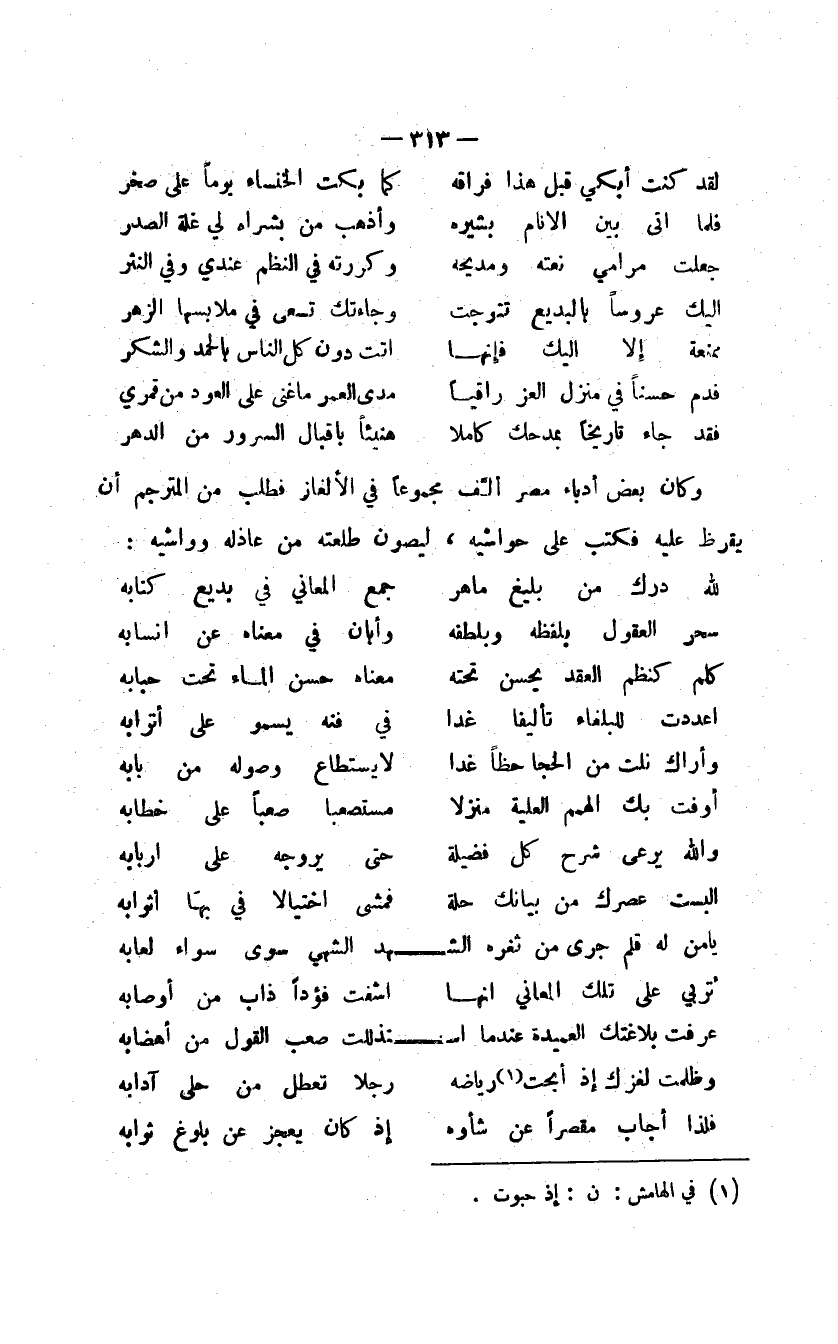 — ٣١٣ —
لقد كنت أبكي قبل هذا فراقه كما بكت الخنساء يوماً على صخر
فلما اتى بين الانام بشيره وأذهب من بشراه لي غلة الصدر
جعلت مرامي نعته ومديحه وكررته في النظم عندي وفي النثر
اليك عروساً بالبديع تتوجت وجاءتك تسعى في ملابسها الزهر
ممنعة إلا اليك فإنهـا اتت دون كل الناس بالحمد والشكر
فدم حسناً في منزل العز راقيـاً مدى العمر ماغنى على العود من قمري
فقد جاء تاريخاً بمدحك كاملا هنيئاً باقبال السرور من الدهر
وكان بعض أدباء مصر ألّف مجموعاً في الألغاز فطلب من المترجم أن
يقرظ عليه فكتب على حواشيه ، ليصون طلعته من عاذله وواشيه :
لله درك من بليغ ماهر جمع المعاني في بديع كتابه
سحر العقول بلفظه وبلطفه وأبان في معناه عن انسابه
كلم كنظم العقد يحسن تحته معناه حسن المـاء تحت حبابه
اعددت للبلغاء تأليفا غدا في فنه يسمو على أترابه
وأراك نلت من الحجا حظاً غدا لايستطاع وصوله من بابه
أوفت بك الهمم العلية منزلا مستصعبا صعباً على خطابه
والله يرعى شرح كل فضيلة حتى يروجه على اربابه
البست عصرك من بيانك حلة فمشى اختيالا في بهّا أثوابه
يامن له قلم جرى من ثغره الشـــهد الشهي سوى سواء لعابه
تُربي على تلك المعاني انهـا اشفت فؤداً ذاب من أوصابه
عرفت بلاغتك العميدة عندما استـــذللت صعب القول من أهضابه
وظلمت لغزك إذ أبحت(١) رياضه رجلا تعطل من حلى آدابه
فلذا أجاب مقصراً عن شأوه إذ كان يعجز عن بلوغ ثوابه
(١) في الهامش : ن : إذ حبوت .